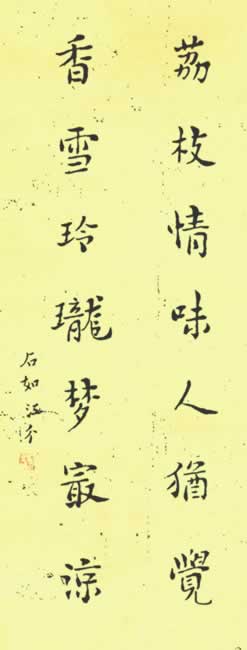 荔枝情味人猶覺
香雪玲瓏梦㝡涼
石如